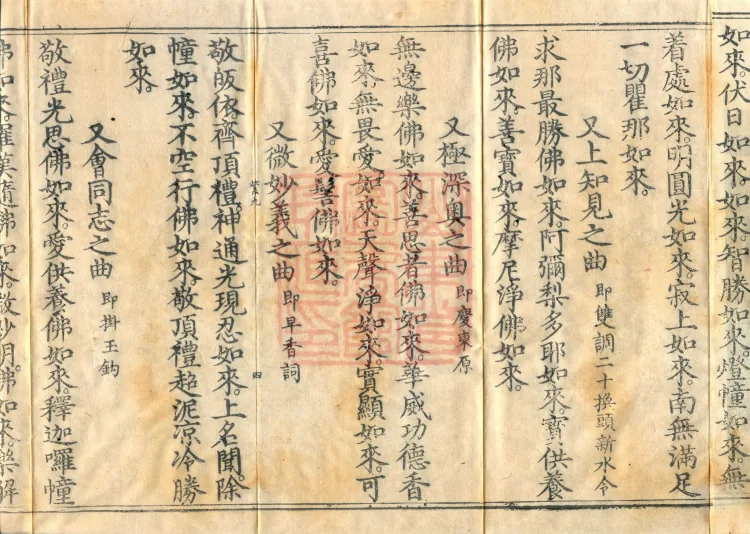 如來。伏日如來。如來。智勝如來。燈幢如來。無
着處如來。明圓光如來。寂上如來。南無滿足
一切瞿那如來。
又上知見之曲 即雙調二十換頭新水令
求那最勝佛如來。阿彌梨多耶如來。寶供養
佛如來。善寶如來。摩尼淨佛如來。
又極深奧之曲 即慶東原
無邊樂佛如來。善思者佛如來。華威功德香
如來。無畏愛如來。天聲淨如來。實顯如來。可
喜佛如來。愛髻佛如來。
又微妙義之曲 即早香詞
敬皈依。齊頂禮。神通光現忍如來。上名聞。除
幢如來。不空行佛如來。敬頂禮超泥涼冷勝
如來。
又會同志之曲 即掛玉鈎
敬禮光思佛如來。愛供養佛如來。釋迦囉幢
佛如來。羅莫隨佛如來。敬妙明佛如來。樂解